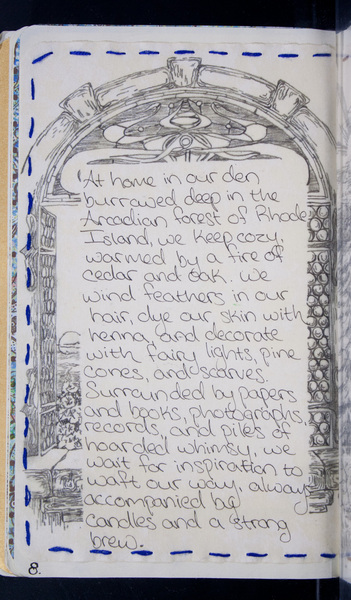 'At home in our den
burrowed deep in the
Arcadian forest of Rhode
Island, we keep cozy,
warmed by a fire of
cedar and oak. We
wind feathers in our
hair, dye our skin with
henna, and decorate
with fairy lights, pine
cones, and scarves.
Surrounded by papers
and books, photographs,
records, and piles of
hoarded whimsy, we
wait for inspiration to
waft our way, always
accompanied by
candles and a strong
brew.
8.